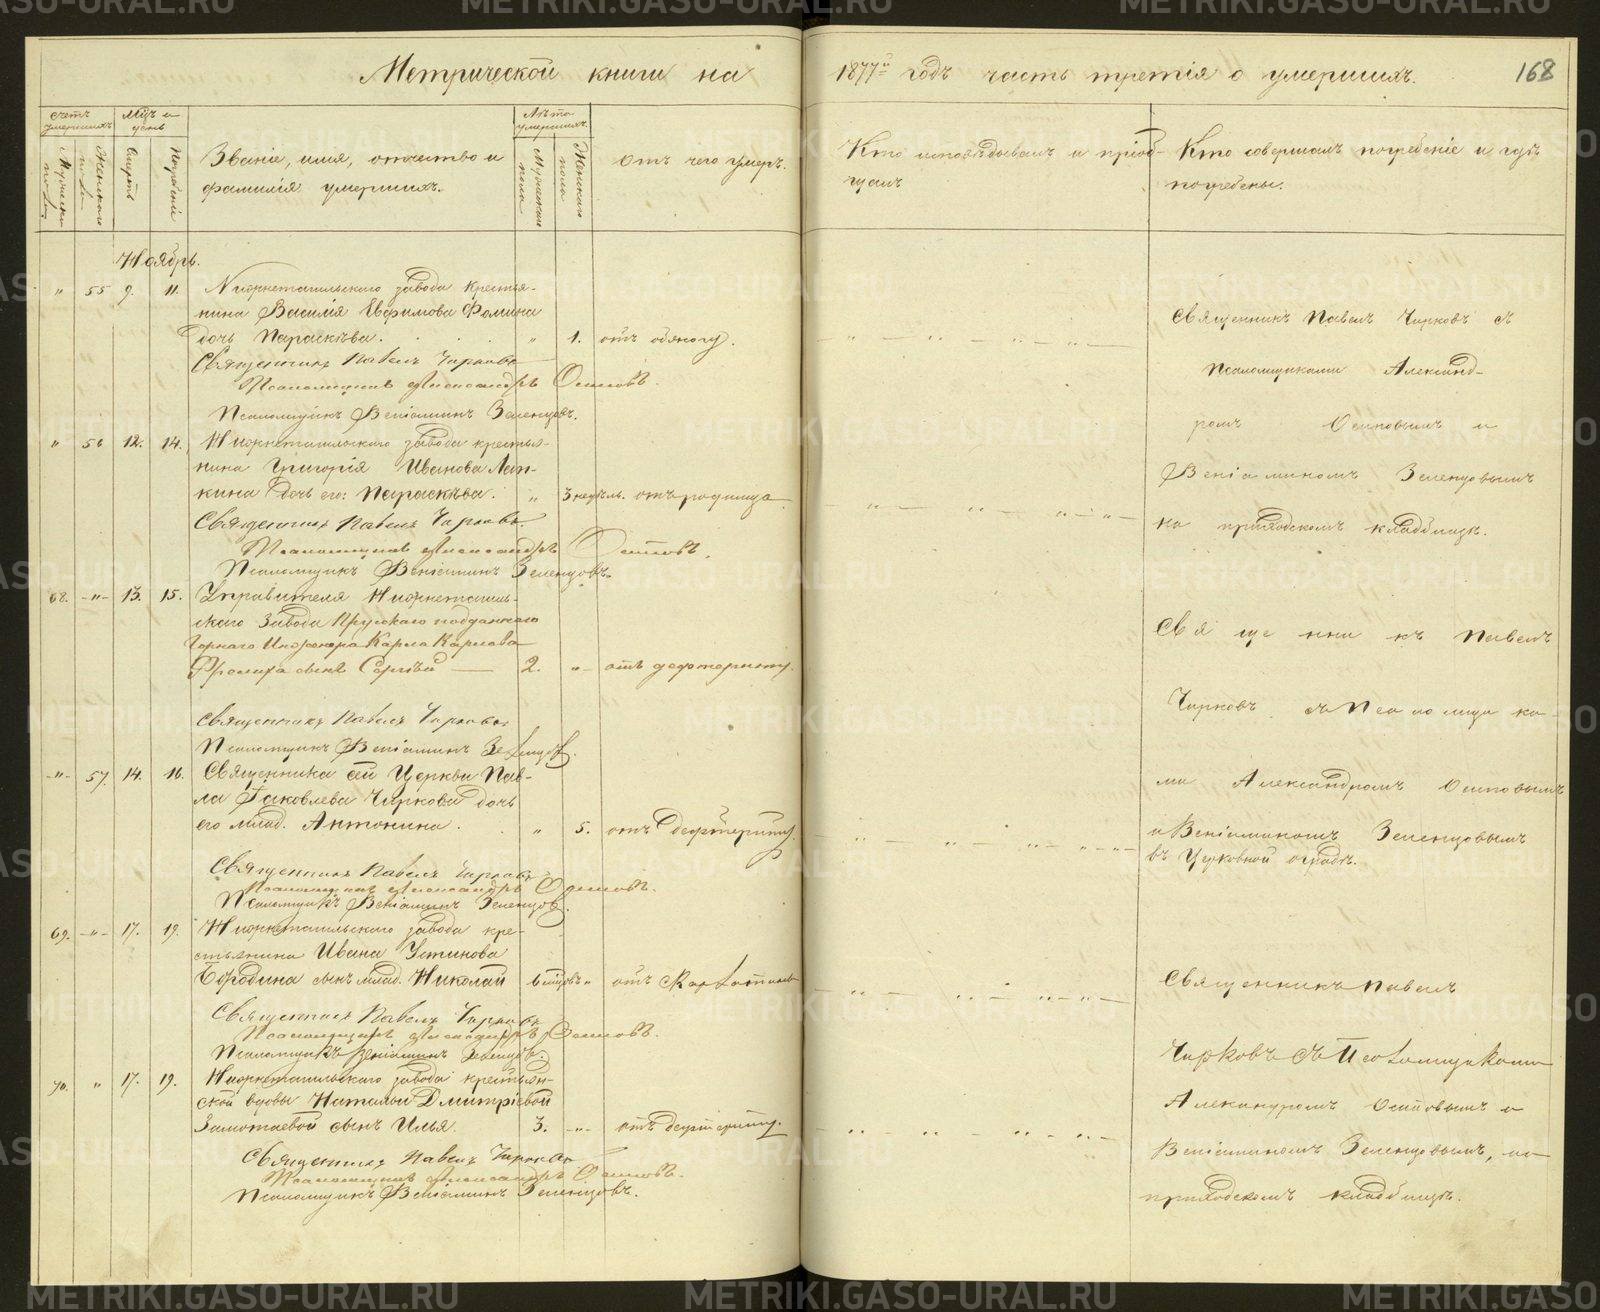 Метрической книги на 1877й годъ часть третія о умершихъ. 168
Счетъ умершихъ
Мѣс. и день
Лѣта умершихъ
Мужеска пола
Женскаго пола
Смерть
Погребеній
Званіе, имя, отчество и
фамилія умершихъ.
Мужескаго пола
Женскаго пола
Отъ чего умеръ.
Кто исповѣдывалъ и пріоб-
щалъ
Кто совершалъ погребеніе и гдѣ
погребены.
Ноябрь.
" 55 9. 11. Нижнетагильскаго завода крестья-
нина Василія Ефимова Фомина
дочь Параскѣва. " 1. отъ
Священникъ Павелъ Чирковъ
Псаломщикъ Александръ Осиповъ.
Псаломщикъ Веніаминъ Зеленцовъ.
Священникъ Павелъ Чирковъ съ
Псаломщиками Александ-
ромъ Осиповымъ и
Веніаминомъ Зеленцовымъ
на приходскомъ кладбищѣ.
" 56 12. 14. Нижнетагильскаго завода крестья-
нина Григорія Иванова Лап-
кина дочь его: Параскѣва. " 3 недѣль. отъ родимца
Священникъ Павелъ Чирковъ.
Псаломщикъ Александръ Осиповъ.
Псаломщикъ Веніаминъ Зеленцовъ.
68. -"- 13. 15. Управителя Нижнетагиль-
скаго Завода Прусскаго подданнаго
Горнаго Инженера Карла Карлова
Фролиха сынъ Сергѣй 2. "- отъ дефтериту.
Священникъ Павелъ Чирковъ
Псаломщикъ Веніаминъ Зеленцовъ.
Священникъ Павелъ
Чирковъ съ Псаломщика-
ми Александромъ Осиповымъ
и Веніаминомъ Зеленцовымъ
въ Церковной оградѣ.
-"- 57. 14. 16. Священника сей Церкви Пав-
ла Іаковлева Чиркова дочь
его млад. Антонина. " 5. отъ дефтериту.
Священникъ Павелъ Чирковъ
Псаломщикъ Александръ Осиповъ.
Псаломщикъ Веніаминъ Зеленцовъ.
69. -"- 17. 19. Нижнетагильскаго завода кре-
стьянина Ивана Устинова
Бородина сынъ млад. Николай 6 мцовъ " отъ
Священникъ Павелъ Чирковъ
Псаломщикъ Александръ Осиповъ.
Псаломщикъ Веніаминъ Зеленцовъ.
Священникъ Павелъ
Чирковъ съ Псаломщиками
Александромъ Осиповымъ и
Веніаминомъ Зеленцовымъ, на
приходскомъ кладбищѣ.
70. " 17. 19. Нижнетагильскаго завода крестьян-
ской вдовы Натальи Дмитріевой
Замотаевой сынъ Илья. 3. -"- отъ дефтериту.
Священникъ Павелъ Чирковъ
Псаломщикъ Александръ Осиповъ.
Псаломщикъ Веніаминъ Зеленцовъ.
METRIKI.GASO-URAL.RU